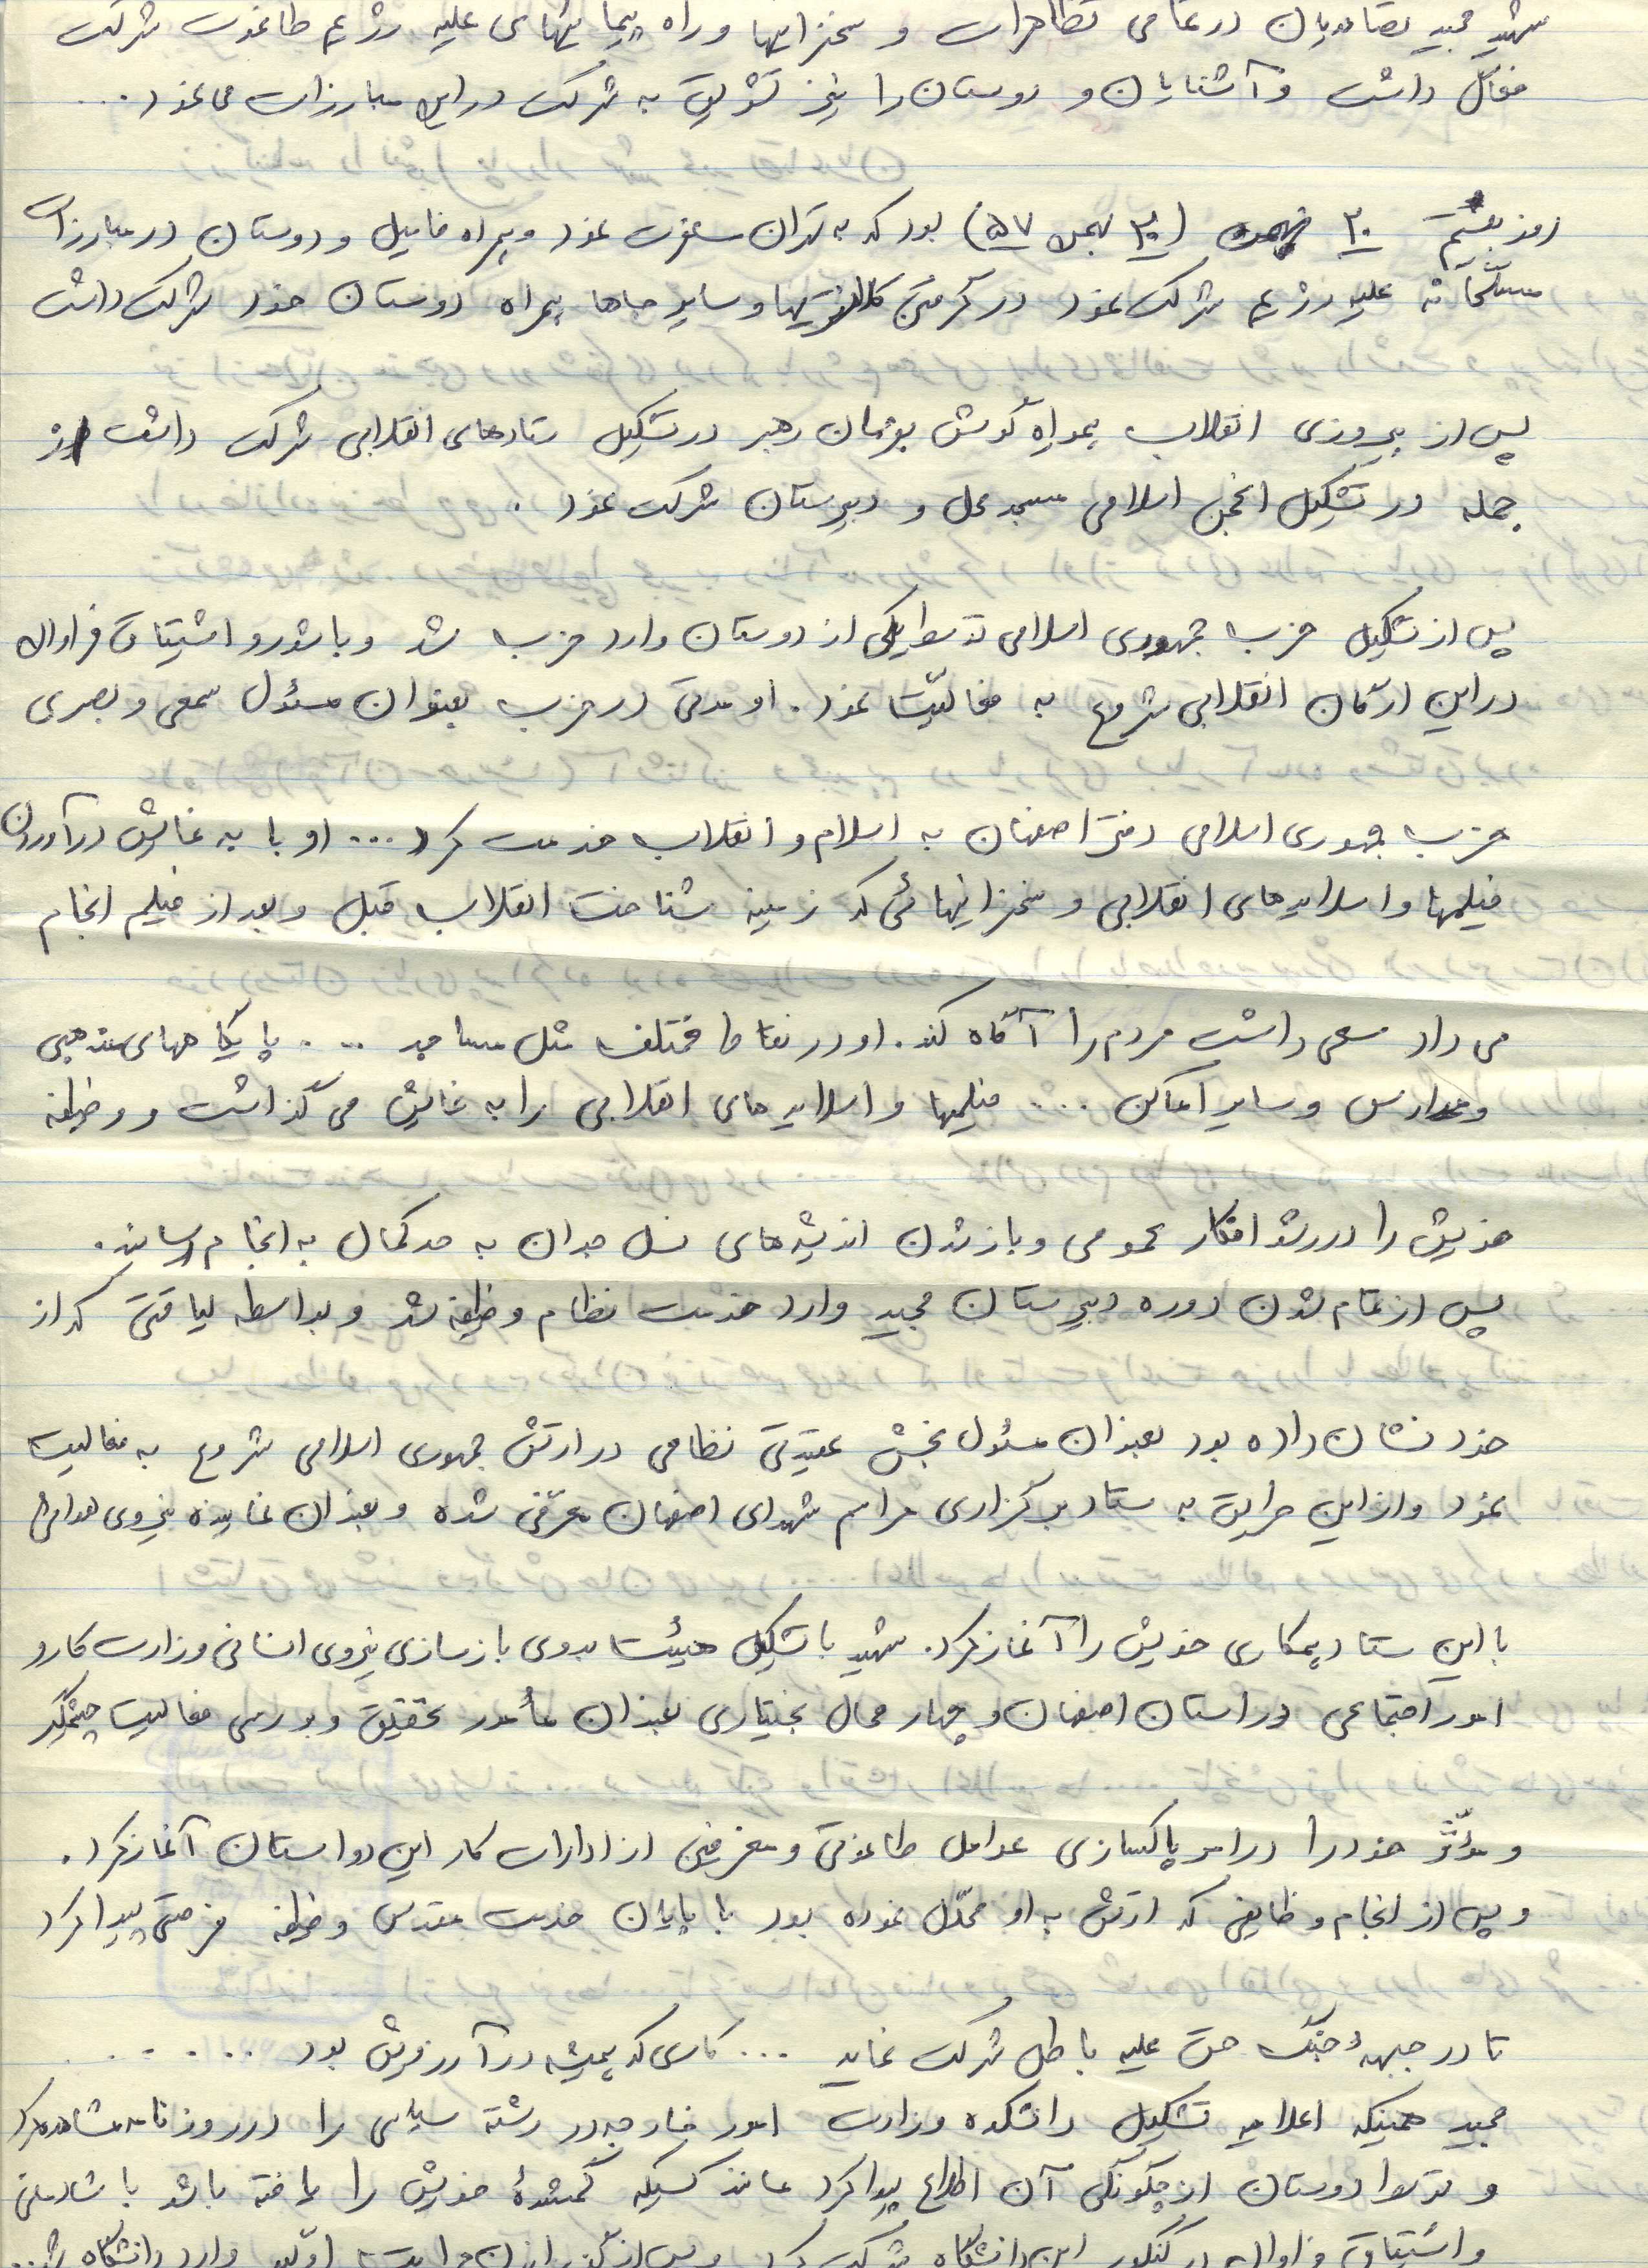 شهید مجید در تمامی تظاهرات و سخنرانیها و راه پیمائیهای علیه رژیم طاغوت شرکت
فعال داشت و آشنایان و دوستان را نیز تشویق به شرکت در این مبارزات می نمود...
روز بیستم ۳۰ (۳۰ بهمن ۵۷) بود که به تهران عزیمت نمود و همراه فامیل و دوستان در مبارزات
مسلحانه علیه رژیم شرکت نمود در گرفتن کلانتریها و سایر جاها همراه دوستان خود شرکت داشت
پس از پیروزی انقلاب همواره گوش بفرمان رهبر در تشکیل ستادهای انقلابی شرکت داشت از
جمله در تشکیل انجمن اسلامی مسجد محل و دبیرستان شرکت نمود.
پس از تشکیل حزب جمهوری اسلامی توسط یکی از دوستان وارد حزب شد و با شور و اشتیاق فراوان
در این ارگان انقلابی شروع به فعالیت نمود. او مدتی در حزب بعنوان مسئول سمعی و بصری
حزب جمهوری اسلامی دفتر اصفهان به اسلام و انقلاب خدمت کرد... او با به نمایش درآوردن
فیلمها و اسلایدهای انقلابی و سخنرانیهائی که زمینه شناخت انقلاب قبل و بعد از فیلم انجام
می داد سعی داشت مردم را آگاه کند. او در نقاط مختلف مثل مساجد ... پایگاههای مذهبی
و مدارس و سایر اماکن ... فیلمها و اسلایدهای انقلابی را به نمایش می گذاشت و وظیفه
خویش را در رشد افکار عمومی و باز شدن اندیشه های نسل جوان به حد کمال به انجام رساند.
پس از تمام شدن دوره دبیرستان مجید وارد خدمت نظام وظیفه شد و بواسطه لیاقتی که از
خود نشان داده بود بعنوان مسئول بخش عقیدتی نظامی در ارتش جمهوری اسلامی شروع به فعالیت
نمود و از این طریق به ستاد برگزاری مراسم شهدای اصفهان معرفی شده و بعنوان نماینده نیروی هوائی
با این ستاد همکاری خویش را آغاز کرد. شهید با تشکیل هیئت بدوی بازسازی نیروی انسانی وزارت کار و
امور اجتماعی در استان اصفهان و چهار محال بختیاری بعنوان مأمور تحقیق و بررسی فعالیت چشمگیر
و مؤثر خود را در امر پاکسازی عوامل طاغوتی و منحرفین از ادارات کار این دو استان آغاز کرد.
و پس از انجام وظایفی که ارتش به او محول نموده بود با پایان خدمت مقدس وظیفه فرصتی پیدا کرد
تا در جبهۀ جنگ حق علیه باطل شرکت نماید ... کاری که همیشه در آرزویش بود ......
مجید همینکه اعلامیه تشکیل دانشکده وزارت امور خارجه در رشته سیاسی را در روزنامه مشاهده کرد
و توسط دوستان از چگونگی آن اطلاع پیدا کرد مانند کسیکه گمشدۀ خویش را یافته باشد با شادمانی
و اشتیاق فراوان در کنکور این دانشگاه شرکت کرد و پس از وارد دانشگاه شد